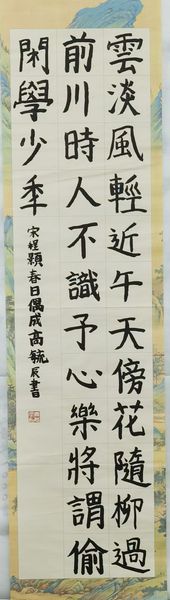 雲淡風輕近午天傍花隨柳過
前川時人不識予心樂將謂偷
閑學少年
宋程顥春日偶成高毓辰書